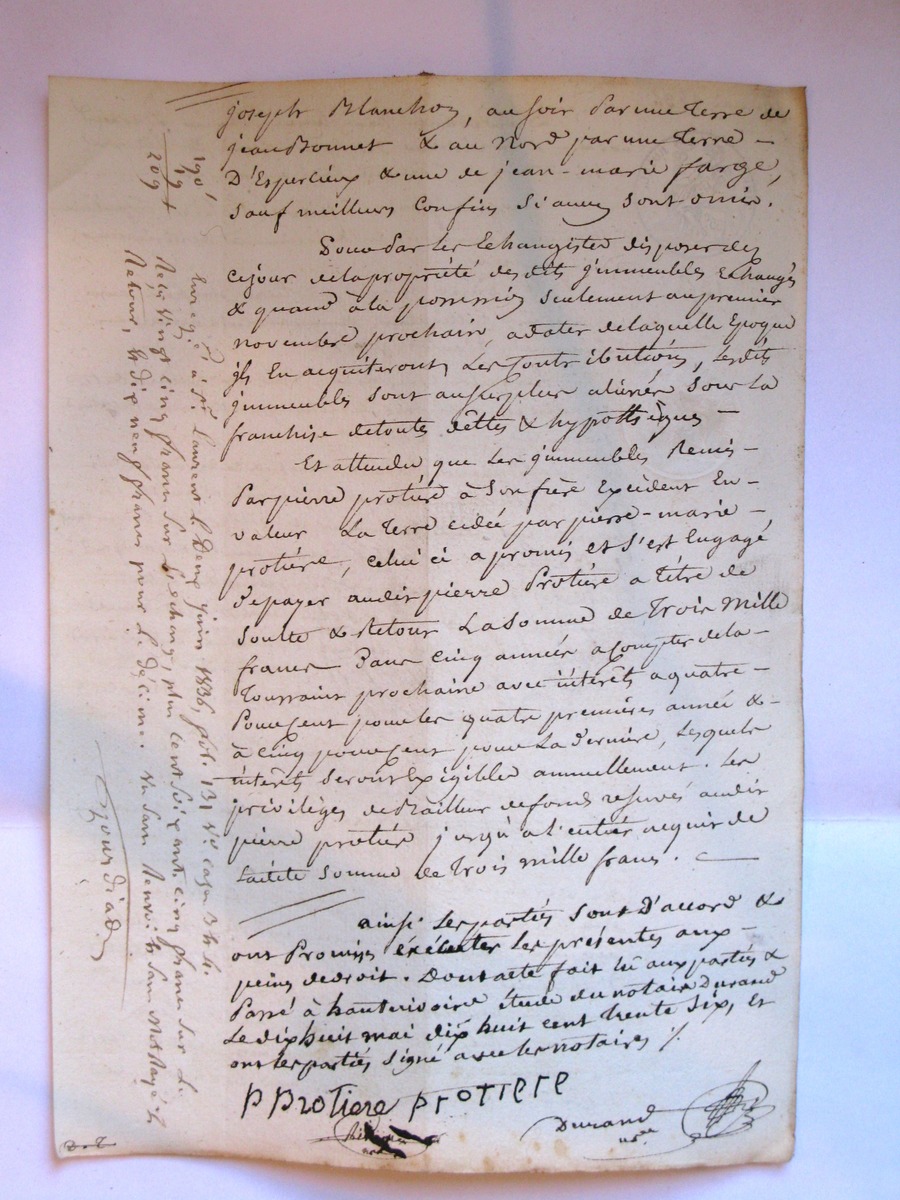 joseph Blanchon, au soir par une terre de
jean Bonnet & au Nord par une terre –
D'Esperlieux & une de jean-marie farge,
sauf meilleurs Confins si aucuns sont omis.
Pour par les Echangistes disposer dès
cejour de la propriété des dits jmmeubles Echangés
& quand à la possession seulement au premier
novembre prochain, a dater de laquelle Epoque
jls En acquiteront les Contributions, les dits
jmmeubles sont au surplus aliénés sous la
franchise de toutes dêttes & hypothèques –
Et attendu que les jmmeubles Remis –
par pierre protière à son frère Excèdent En –
valeur la terre cédée par pierre-marie –
protière, celui ci a promis et s'est Engagé
de payer audit pierre Protière a titre de
soulte & Retour la somme de trois mille
francs dans cinq années a compter de la –
Toussaint prochaine avec intérêts a quatre –
pour cent pour les quatre premières année & –
à cinq pour cent pour la dernière, lesquels
intérêts seront Exigibles annuellement. Les
privilèges de Bailleur de fonds réservés audit
pierre protière jusqu'a l'entier acquit de
ladite somme de trois mille francs.
ainsi les parties sont D'accord &
ont Promis exécuter les présentes aux –
peines de droit. Dont acte fait lu aux parties &
Passé à hauterivoire étude du notaire Durand
Le dix huit mai dix huit cent trente six, Et
ont les parties signé avec les notaires /.
P Protiere PROTIERE
Durand
nre
190,
19 +
209
Enregé à St. Laurent le deux juin 1836, fol. 131 Vo. case 3 &
Reçu vingt cinq francs sur l'échange, plus cent soixante cinq francs sur le
Retour, & dix neuf francs pour le décime.